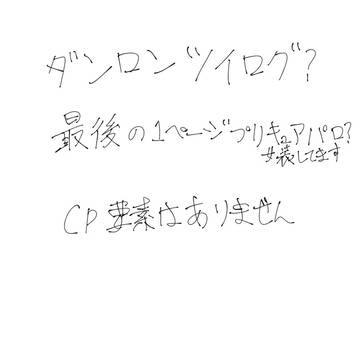 ダンロンツイログ?
最後の1ページプリキュアパロ?
女装してます
CP要素はありません